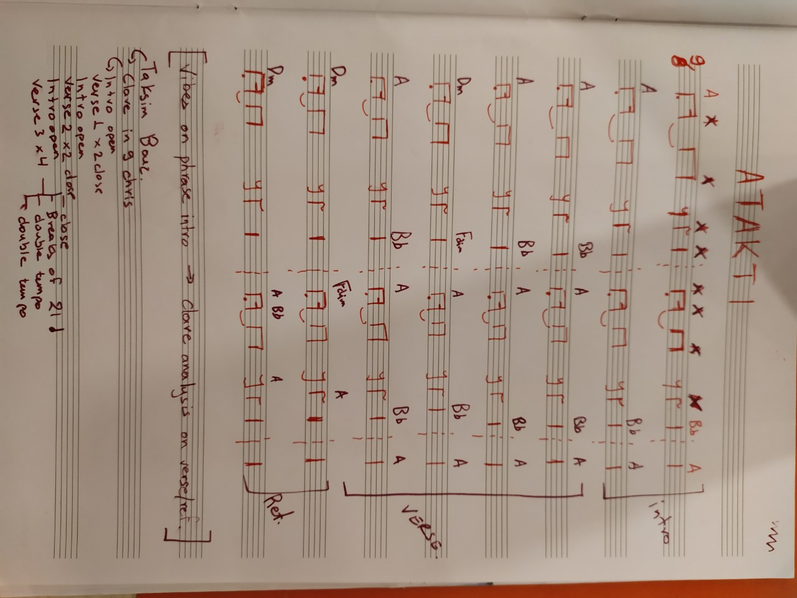 ATAKTI
9 A Bb A
8
A Bb A
intro
A Bb A Bb A
A Bb A Bb A
Dm Fdim A Bb A
A Bb A Bb A
VERSE
Dm Fdim A
Dm A Bb A
Ref.
[Vibes on phrase intro → clave analysis on verse/ref.]
Taksim Bouz.
Clave in 9 chris
Intro open
verse 1 x2 close
Intro open
verse 2 x2 close - close
Intro open Breaks of
verse 3 x4 double tempo
double tempo